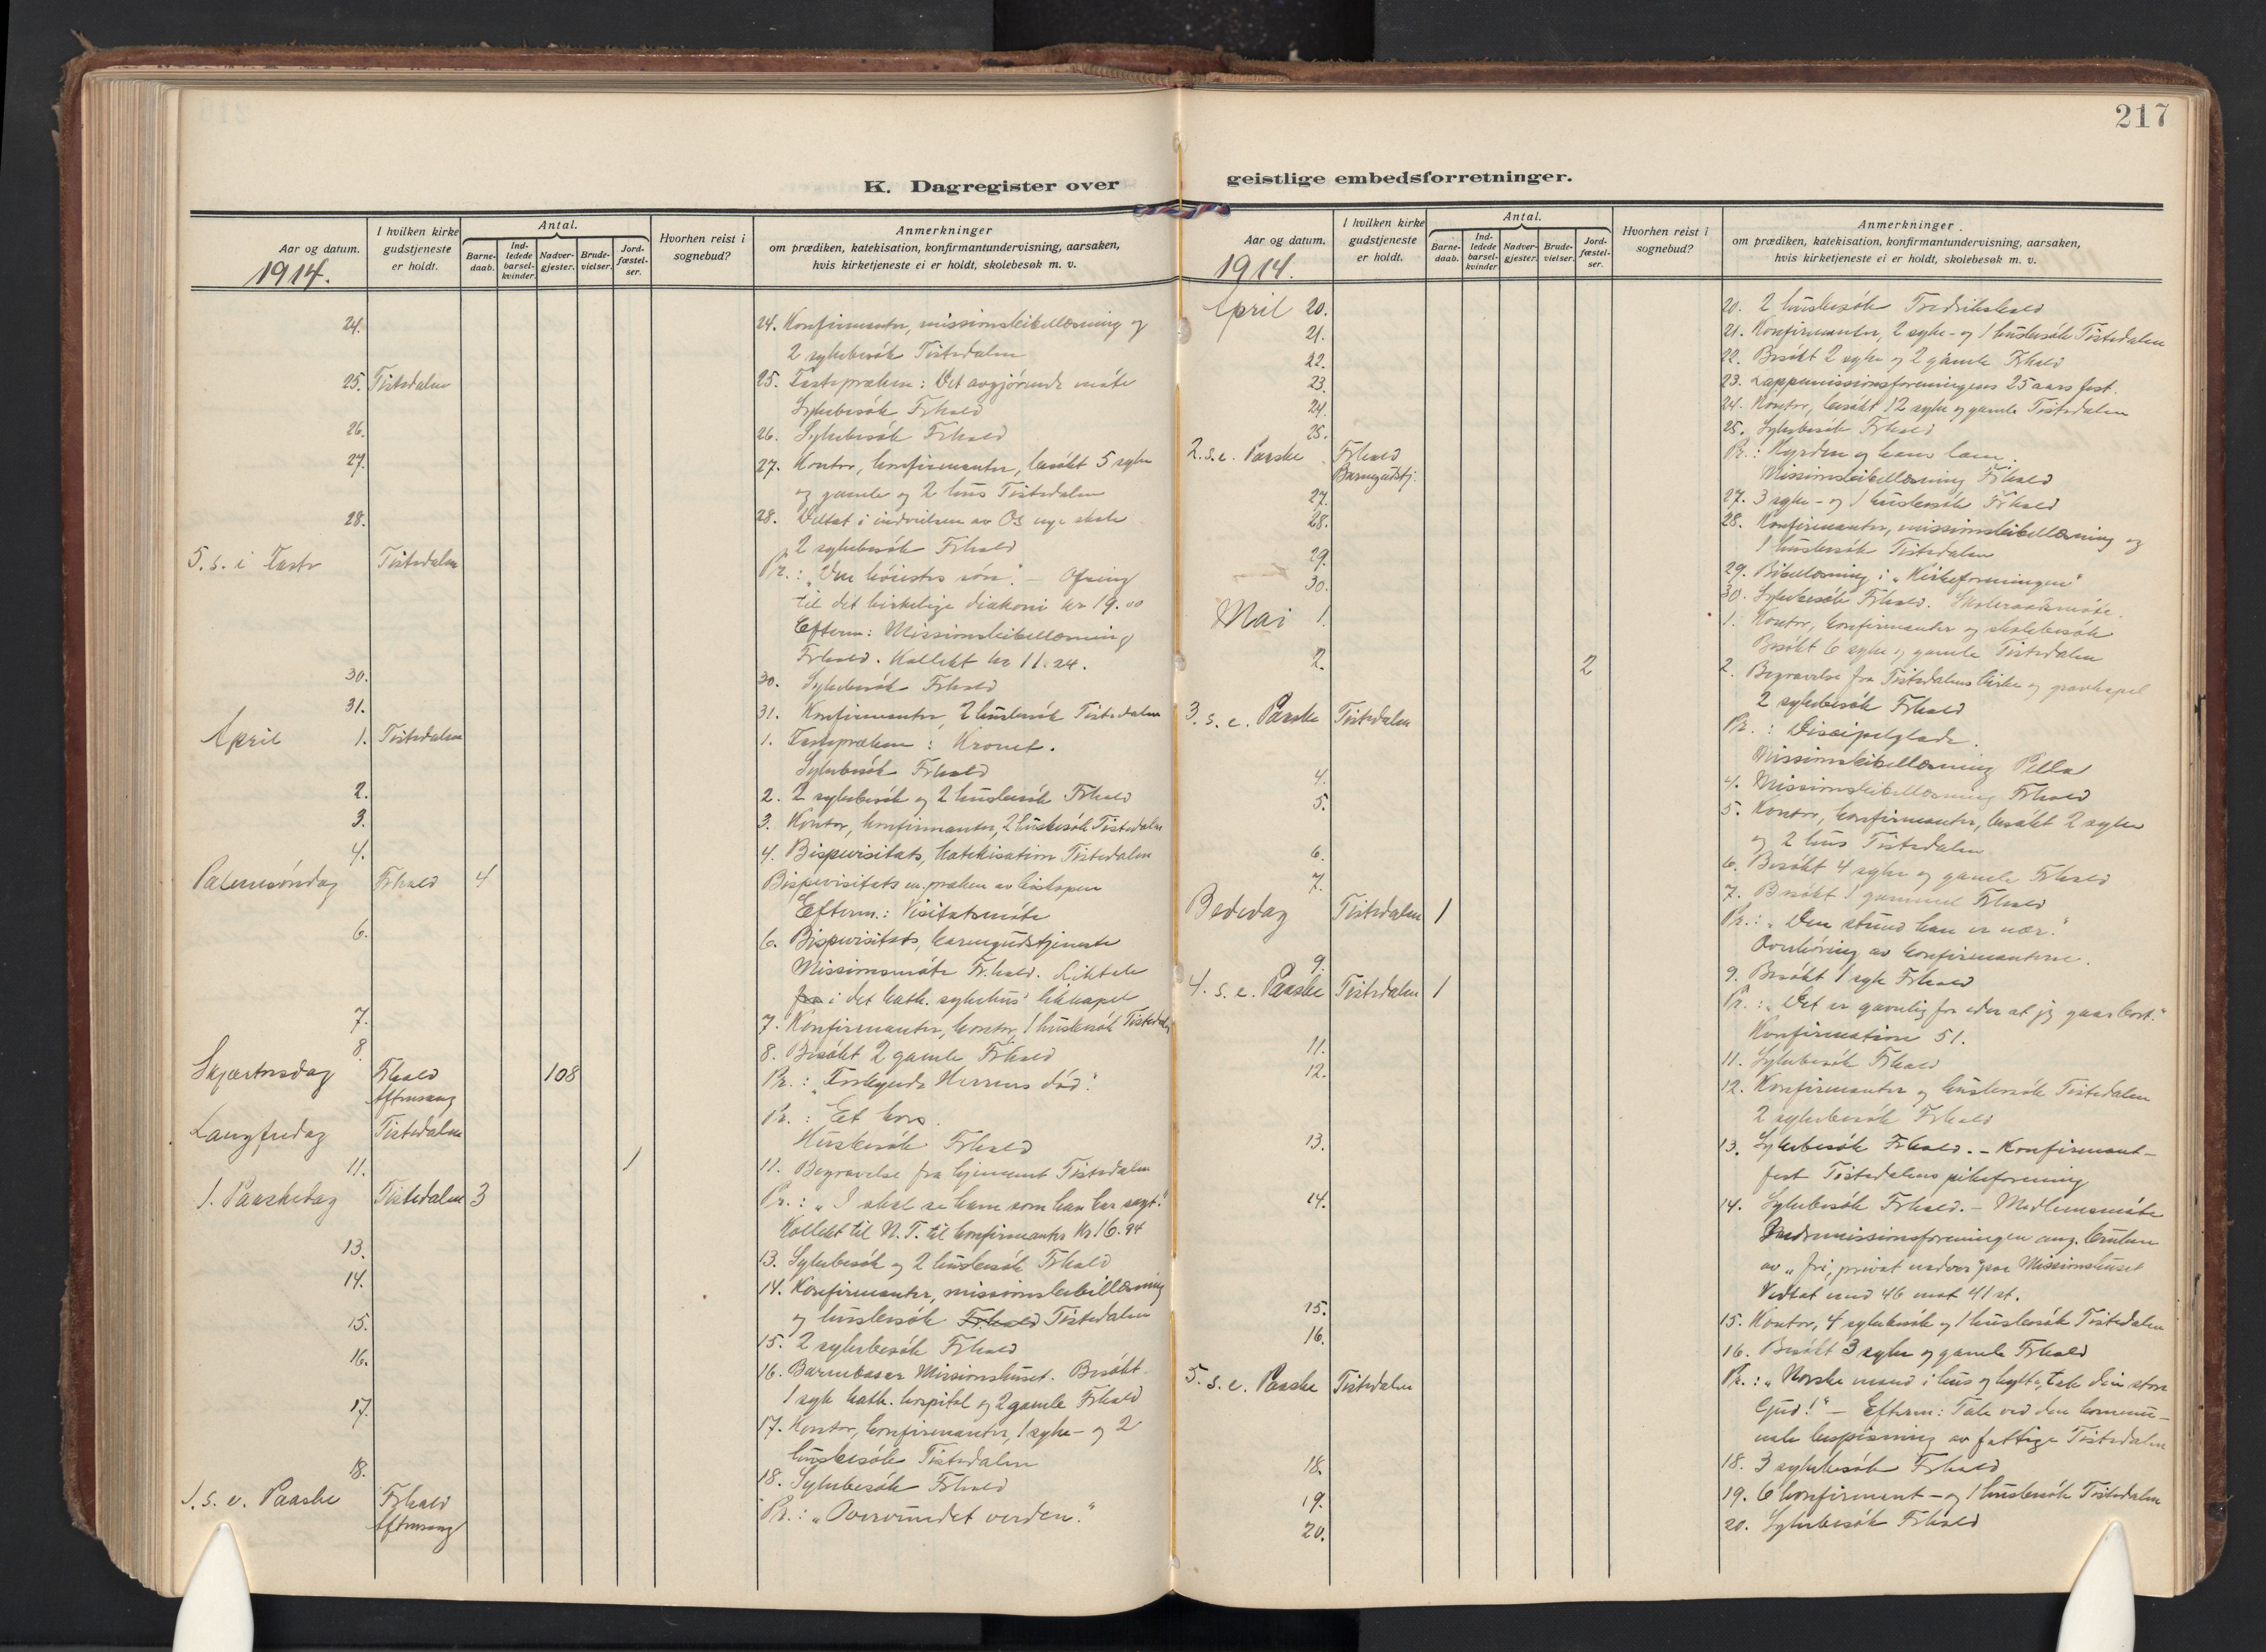 217
K. Dagregister over
Aar og datum.
1914.
I hvilken kirke gudstjeneste er holdt.
Antal.
Barne-daab.
Ind-ledede barsel-kvinder
Nadver-gjester.
Brude-vielser.
Jord-fæstel-ser.
Hvorhen reist i sognebud?
Anmerkninger
om prædiken, katekisation, konfirmantundervisning, aarsaken,
hvis kirketjeneste ei er holdt, skolebesøk m. v.
24. 24. Konfirmanter, missionsbibellæsning og
2 sykebesök Tistedalen
25. Tistedalen 25. Fastepræken: Det avgjörende möte
Sykebesök Frhald
26. 26. Sykebesök Frhald
27. 27. Kontor, konfirmanter, besökt 5 syke
og gamle og 2 hus Tistedalen
28. 28. Deltat i indvielsen av Os nye skole
2 sykebesök Frhald
5. s. i Faste Tistedalen Pr.: "Den höiestes sön". – Ofring
til det kirkelige diakoni kr 19.00
Efterm: Missionsbibellæsning
Frhald. Kollekt kr 11.24.
30. 30. Sykebesök Frhald
31. 31. Konfirmanter, 2 husbesök Tistedalen
April 1. Tistedalen 1. Fastepræken: Kronet.
Sykebesök Frhald
2. 2. 2 sykebesök og 2 husbesök Frhald
3. 3. Kontor, konfirmanter, 2 husbesök Tistedalen
4. 4. Bispevisitats, katekisation Tistedalen
Palmesöndag Frhald 4 Bispevisitats m. præken av biskopen
Efterm.: Visitatsmöte
6. 6. Bispevisitats, barnegudstjeneste
Missionsmöte Fr.hald. Liktale
fra i det kath. sykehus' likkapel
7. 7. Konfirmanter, kontor, 1 husbesök Tistedalen
8. 8. Besökt 2 gamle Frhald
Skjærtorsdag Frhald 108 Pr.: "Forkynde Herrens död."
Aftensang Pr.: Et kors.
Langfredag Tistedalen Husbesök Frhald
11. 1 11. Begravelse fra hjemmet Tistedalen
1. Paaskedag Tistedalen 3 Pr.: "I skal se ham som han har sagt."
Kollekt til N. T. til konfirmanter Kr 16.94
13. 13. Sykebesök og 2 husbesök Frhald
14. 14. Konfirmanter, missionsbibellæsning
og husbesök Fr.hald Tistedalen
15. 15. 2 sykebesök Frhald
16. 16. Barnebasar Missionshuset. Besökt
1 syk kath. hospital og 2 gamle Frhald
17. 17. Kontor, konfirmanter, 1 syke- og 2
husbesök Tistedalen
18. 18. Sykebesök Frhald
1. s. e. Paaske Frhald Pr.: "Overvundet verden."
Aftensang
geistlige embedsforretninger.
Aar og datum.
1914.
I hvilken kirke gudstjeneste er holdt.
Antal.
Barne-daab.
Ind-ledede barsel-kvinder
Nadver-gjester.
Brude-vielser.
Jord-fæstel-ser.
Hvorhen reist i sognebud?
Anmerkninger.
om prædiken, katekisation, konfirmantundervisning, aarsaken,
hvis kirketjeneste ei er holdt, skolebesøk m. v.
April 20. 20. 2 husbesök Fredrikshald
21. 21. Konfirmanter, 2 syke- og 1 husbesök Tistedalen
22. 22. Besökt 2 syke og 2 gamle Frhald
23. 23. Lappemissionsforeningens 25 aars fest.
24. 24. Kontor, besökt 12 syke og gamle Tistedalen
25. 25. Sykebesök Frhald
2. s. e. Paaske Frhald Pr.: Hyrden og hans lam.
Barnegudstj. Missionsbibellæsning Frhald
27. 27. 3 syke- og 1 husbesök Frhald
28. 28. Konfirmanter, missionsbibellæsning og
1 husbesök Tistedalen
29. 29. Bibellæsning i "Kirkeforeningen"
30. 30. Sykebesök Frhald. Skoleraadsmöte.
Mai 1. 1. Kontor, konfirmanter og skolebesök
Besökt 6 syke og gamle Tistedalen
2. 2 2. Begravelse fra Tistedalens kirke og gravkapel
2 sykebesök Frhald
3. s. e. Paaske Tistedalen Pr.: Discipelglæde.
Missionsbibellæsning Pella
4. 4. Missionsbibellæsning Frhald
5. 5. Kontor, konfirmanter, besökt 2 syke
og 2 hus Tistedalen
6. 6. Besökt 4 syke og gamle Frhald
7. 7. Besökt 1 gammel Frhald
Bededag Tistedalen 1 Pr.: "Den stund han er nær."
Overhöring av konfirmanterne.
9. 9. Besökt 1 syk Frhald
4. s. e. Paaske Tistedalen 1 Pr.: "Det er gavnlig for eder at jeg gaar bort."
Konfirmation 51.
11. 11. Sykebesök Frhald
12. 12. Konfirmanter og husbesök Tistedalen
2 sykebesök Frhald
13. 13. Sykebesök Frhald. – Konfirmant-
fest Tistedalens pikeforening
14. 14. Sykebesök Frhald. – Medlemsmöte
Indremissionsforeningen ang. bruken
av "fri, privat nadver" paa Missionshuset
Vedtat med 46 mot 41 st.
15. 15. Kontor, 4 sykebesök og 1 husbesök Tistedalen
16. 16. Besökt 3 syke og gamle Frhald
5. s. e. Paaske Tistedalen Pr.: "Norske mand i hus og hytte, tak din store
Gud!" – Efterm: Tale ved den kommu-
nale bespisning av fattige Tistedalen
18. 18. 3 sykebesök Frhald
19. 19. 6 konfirmant- og 1 husbesök Tistedalen
20. 20. Sykebesök Frhald